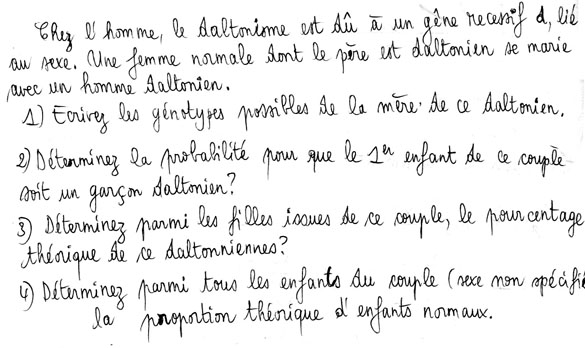 Chez l'homme, le daltonisme est dû à un gène recessif d, lié
au sexe. Une femme normale dont le père est daltonien se marie
avec un homme daltonien.
1) Ecrivez les génotypes possibles de la mère de ce daltonien.
2) Déterminez la probabilité pour que le 1er enfant de ce couple
soit un garçon daltonien?
3) Déterminez parmi les filles issues de ce couple, le pourcentage
théorique de ce daltonniennes?
4) Déterminez parmi tous les enfants du couple (sexe non spécifié
la proportion théorique d'enfants normaux.